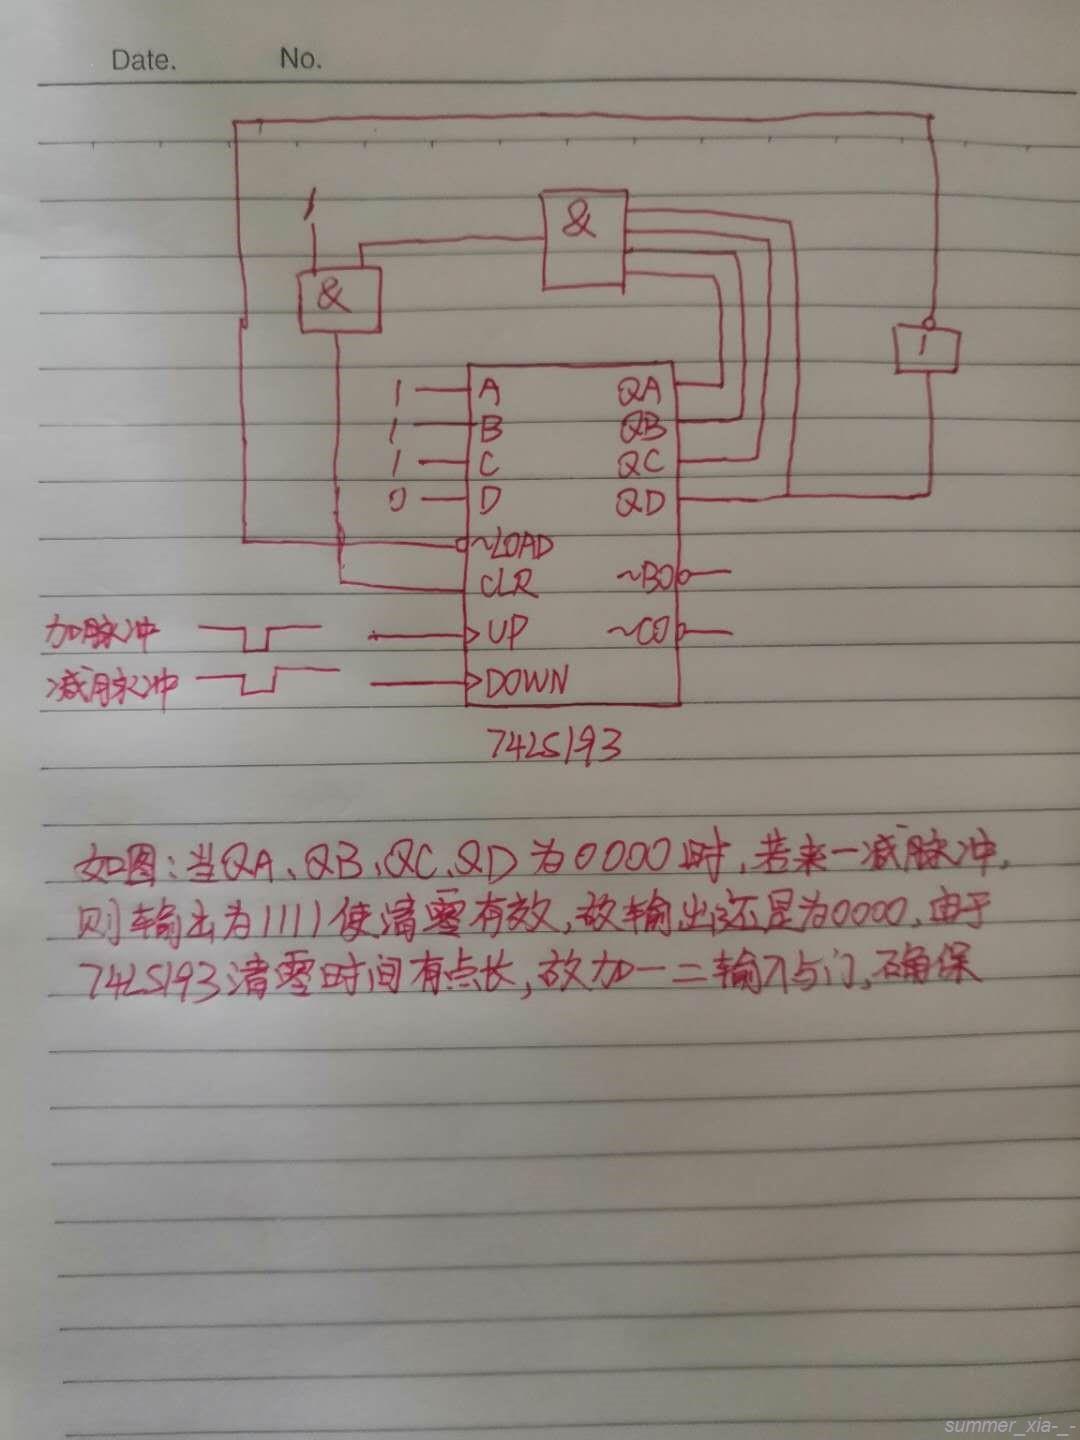 Date. No.
1
&
&
1
1 A QA
1 B QB
1 C QC
0 D QD
~LOAD
CLR ~BO
加脉冲 UP ~CO
减脉冲 DOWN
74LS193
如图:当QA、QB、QC、QD为0000时,若来一减脉冲,
则输出为1111使清零有效,故输出还是为0000,由于
74LS193清零时间有点长,故加一二输入与门,确保
summer_xia-_-